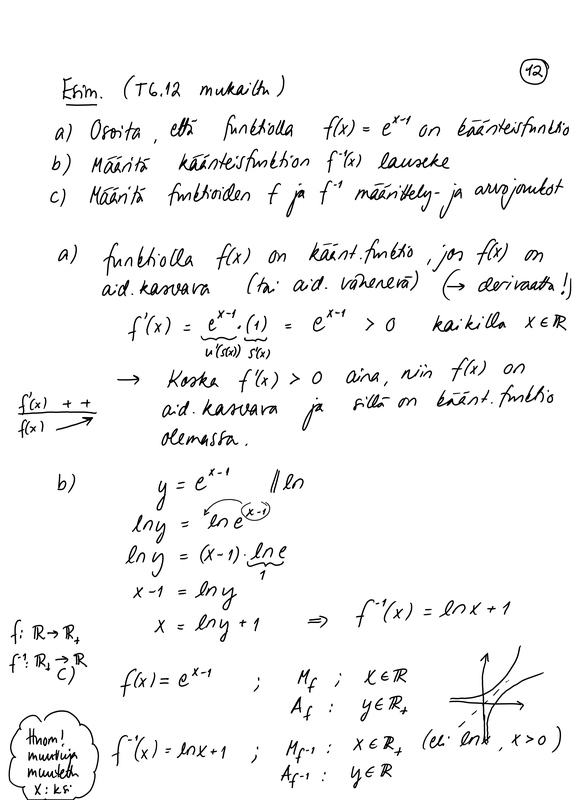 12
Esim. (T6.12 mukailtu)
a) Osoita, että funktiolla f(x) = e^{x-1} on käänteisfunktio
b) Määritä käänteisfunktion f^{-1}(x) lauseke
c) Määritä funktioiden f ja f^{-1} määrittely- ja arvojoukot
a) funktiolla f(x) on käänt.funktio, jos f(x) on
aid. kasvava (tai aid. vähenevä) (→ derivaatta!)
f'(x) = e^{x-1} · (1) = e^{x-1} > 0 kaikilla x ∈ ℝ
u'(s(x)) s'(x)
→ Koska f'(x) > 0 aina, niin f(x) on
f'(x) + +
aid. kasvava ja sillä on käänt. funktio
f(x)
olemassa.
b) y = e^{x-1} || ln
ln y = ln e^{x-1}
ln y = (x-1) · ln e
1
x-1 = ln y
x = ln y + 1 ⇒ f^{-1}(x) = ln x + 1
f: ℝ → ℝ₊
f^{-1}: ℝ₊ → ℝ
c) f(x) = e^{x-1} ; M_f ; x ∈ ℝ
A_f : y ∈ ℝ₊
f^{-1}(x) = ln x + 1 ; M_{f^{-1}} : x ∈ ℝ₊ (eli ln x, x > 0)
A_{f^{-1}} : y ∈ ℝ
Huom!
muuttuja
muutettu
x:ksi